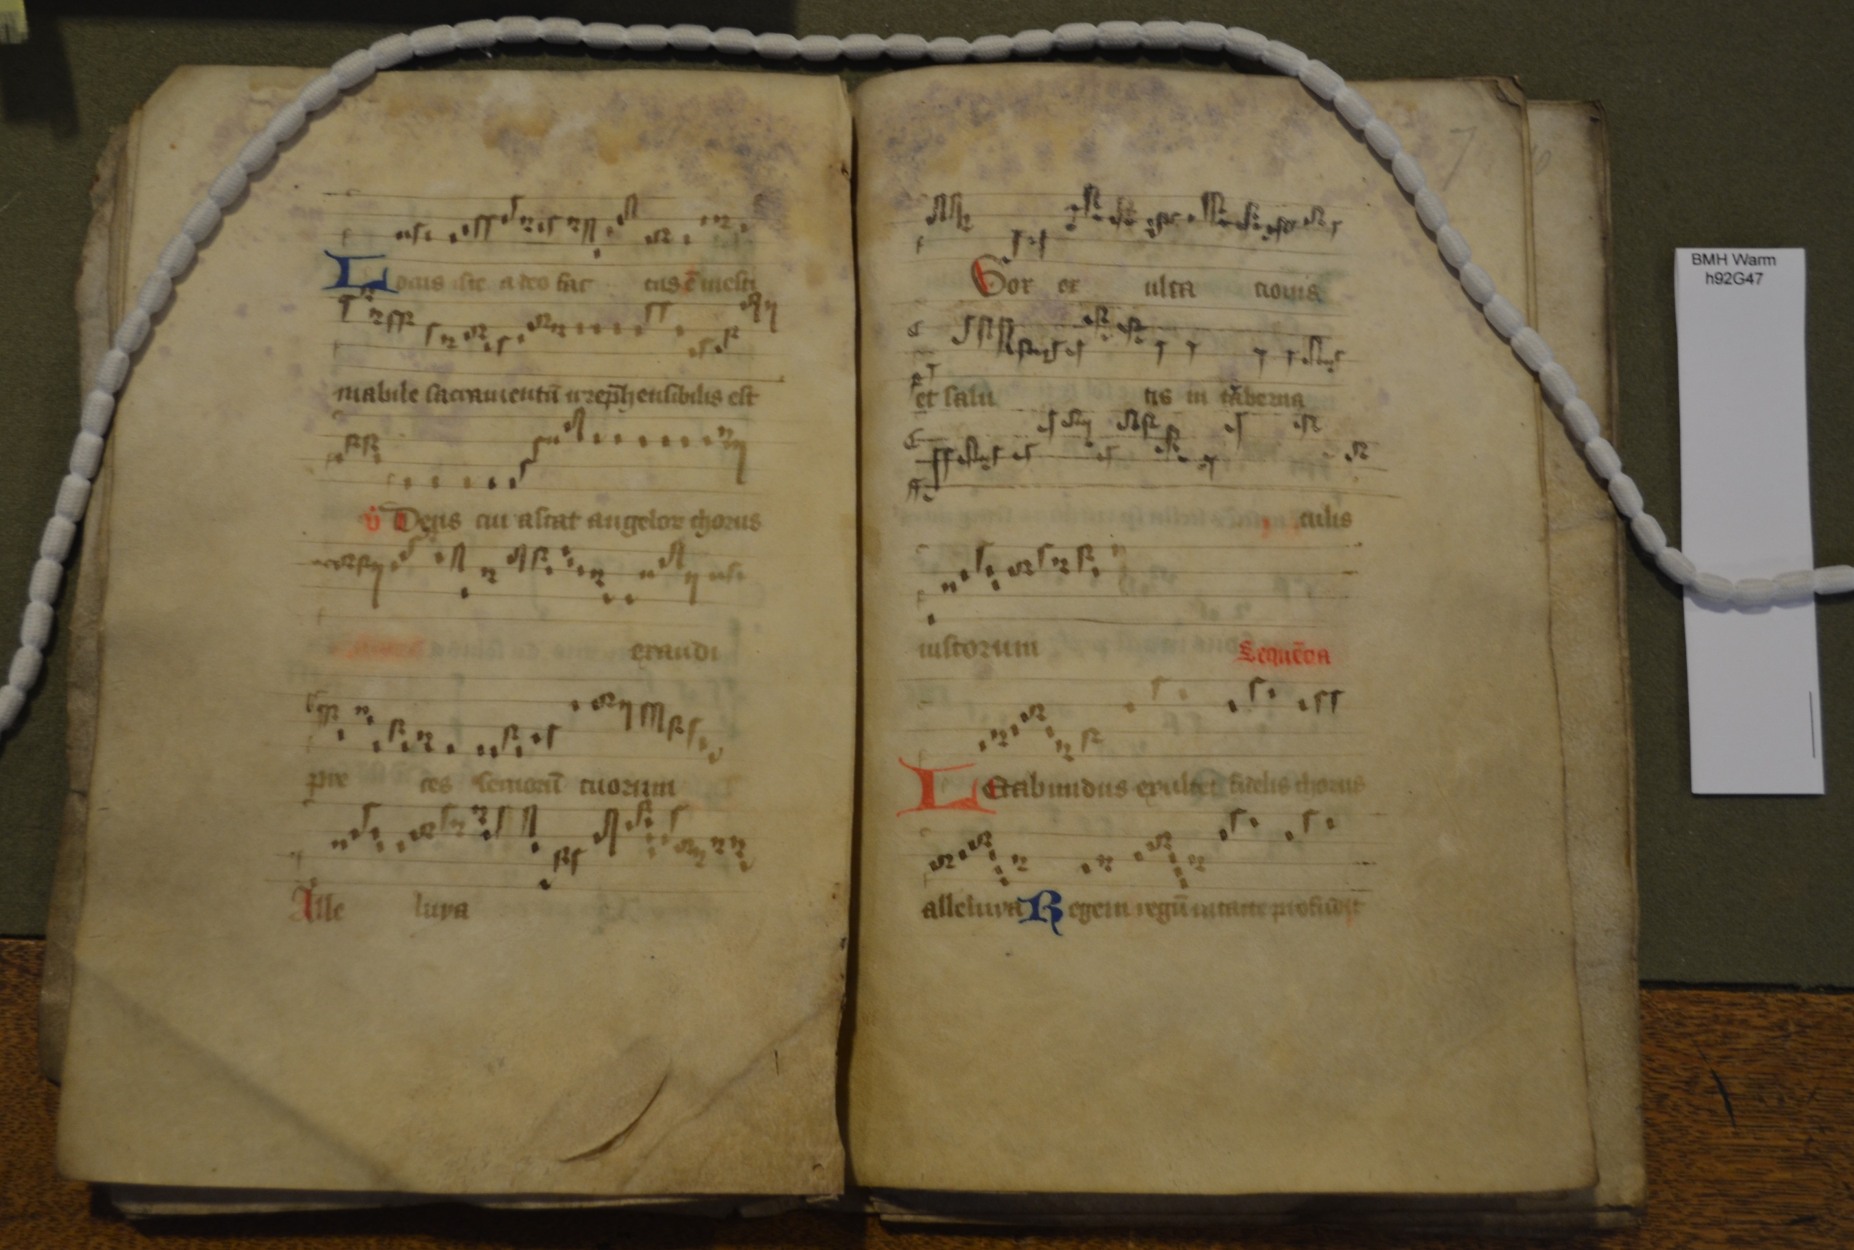 Locus iste a deo fac tus ē inesti
mabile sacramentū irrep̄hensibilis est
v̄ Deus cui astat angelor chorus
exaudi
pre ces seruorū tuorum
Alle luya
7
Vox ex ulta cionis
et salu tis in taberna
culis
iustorum Sequēcia
Letabundus exultet fidelis chorus
alleluya Regem regū intacte profudit
BMH Warm
h92G47